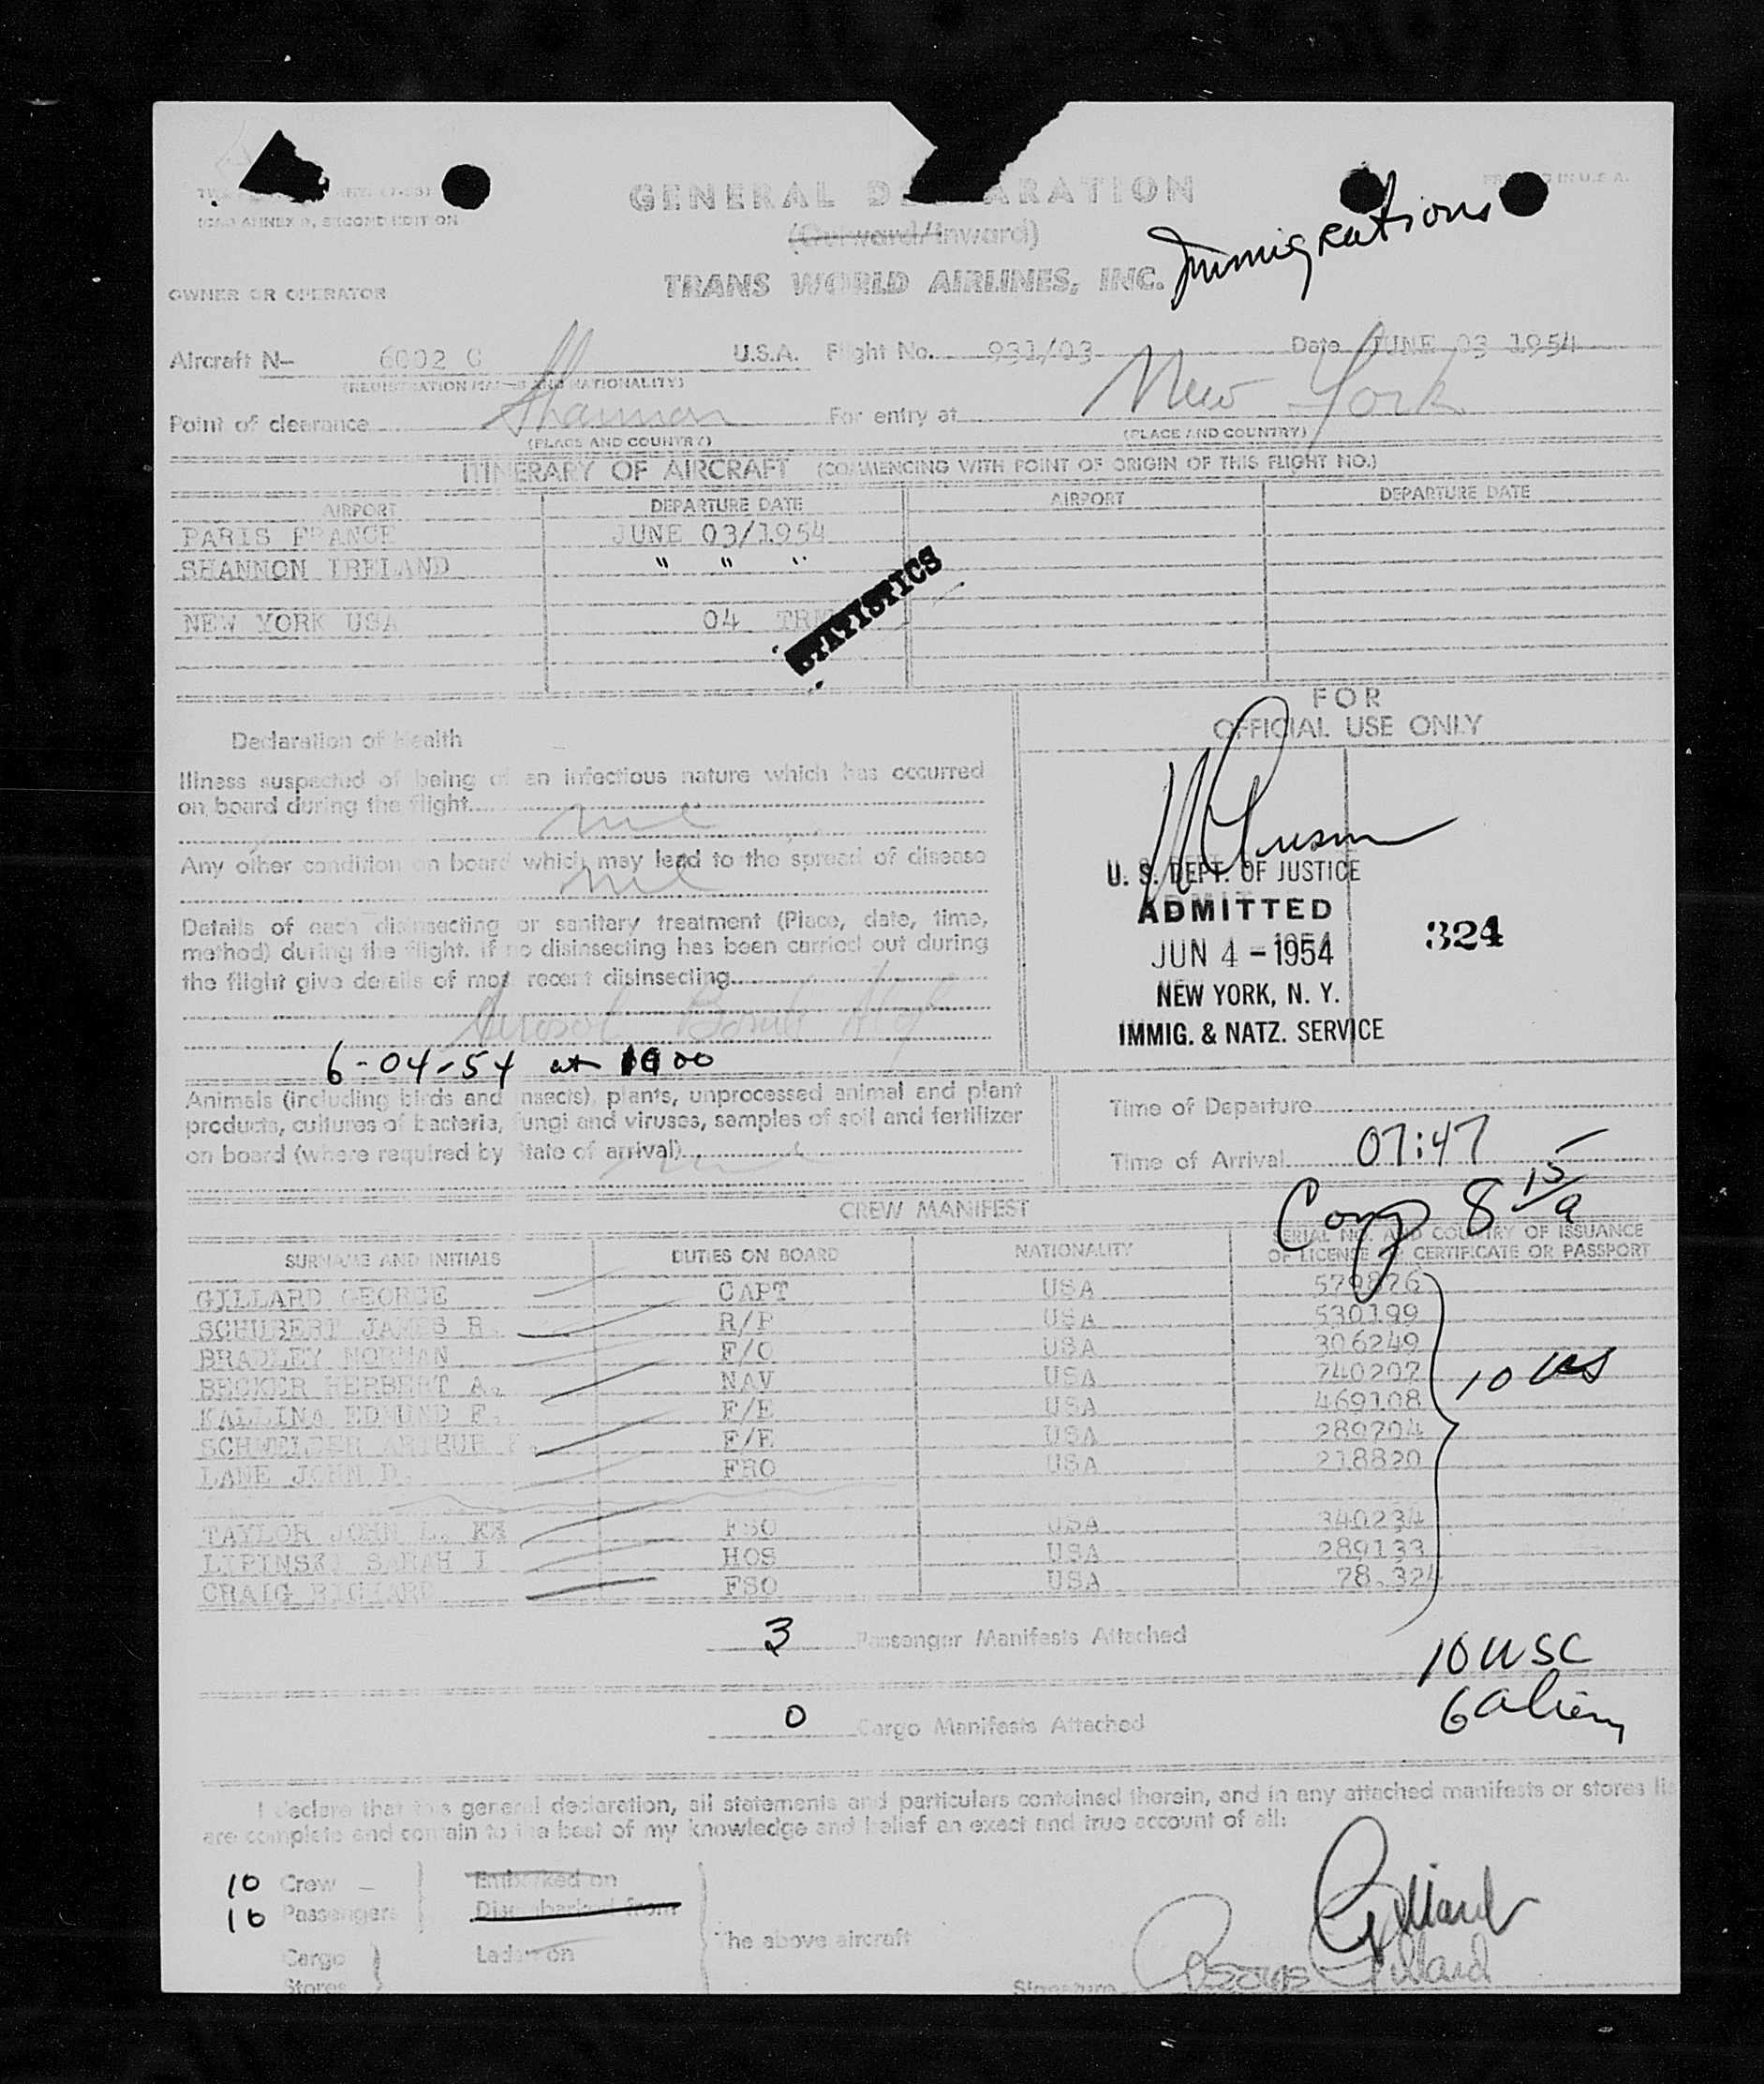 ICAO ANNEX 9, SECOND EDITION
GENERAL DECLARATION
(Outward/Inward)
Immigrations
TRANS WORLD AIRLINES, INC.
OWNER OR OPERATOR
Aircraft N- 6002 C U.S.A. Flight No. 931/03 Date JUNE 03 1954
(REGISTRATION MARKS AND NATIONALITY)
Point of clearance Shannon For entry at New York
(PLACE AND COUNTRY) (PLACE AND COUNTRY)
ITINERARY OF AIRCRAFT (COMMENCING WITH POINT OF ORIGIN OF THIS FLIGHT NO.)
AIRPORT DEPARTURE DATE AIRPORT DEPARTURE DATE
PARIS FRANCE JUNE 03/1954
SHANNON IRELAND " " "
NEW YORK USA 04
STATISTICS
FOR
OFFICIAL USE ONLY
Declaration of Health
Illness suspected of being of an infectious nature which has occurred
on board during the flight
nil
Any other condition on board which may lead to the spread of disease
nil
Details of each disinsecting or sanitary treatment (Place, date, time,
method) during the flight. If no disinsecting has been carried out during
the flight give details of most recent disinsecting
Aerosol Bomb
6-04-54 at
U. S. DEPT. OF JUSTICE
ADMITTED
JUN 4 - 1954
NEW YORK, N. Y.
IMMIG. & NATZ. SERVICE
324
Animals (including birds and insects), plants, unprocessed animal and plant
products, cultures of bacteria, fungi and viruses, samples of soil and fertilizer
on board (where required by State of arrival)
Time of Departure
Time of Arrival 07:47
Comp 8 15/a
CREW MANIFEST
SURNAME AND INITIALS DUTIES ON BOARD NATIONALITY SERIAL NO. AND COUNTRY OF ISSUANCE
OF LICENSE OR CERTIFICATE OR PASSPORT
GILLARD GEORGE CAPT USA 579876
SCHUBERT JAMES R. R/P USA 530199
BRADLEY NORMAN F/O USA 306249
BECKER HERBERT A. NAV USA 740207
KALLINA EDMUND F. F/E USA 469108
ARTHUR F/E USA 289704
LANE JOHN D. FRO USA 218820
10 US
TAYLOR JOHN L. FSO USA 340234
LIPINSKI SARAH I HOS USA 289133
CRAIG RICHARD FSO USA 78,324
3 Passenger Manifests Attached
10 USC
6 alien
0 Cargo Manifests Attached
I declare that this general declaration, all statements and particulars contained therein, and in any attached manifests or stores
are complete and contain to the best of my knowledge and belief an exact and true account of all:
10 Crew Embarked on
16 Passengers Disembarked from
The above aircraft
Cargo Laden on
Stores
Gillard
Signature George Gillard